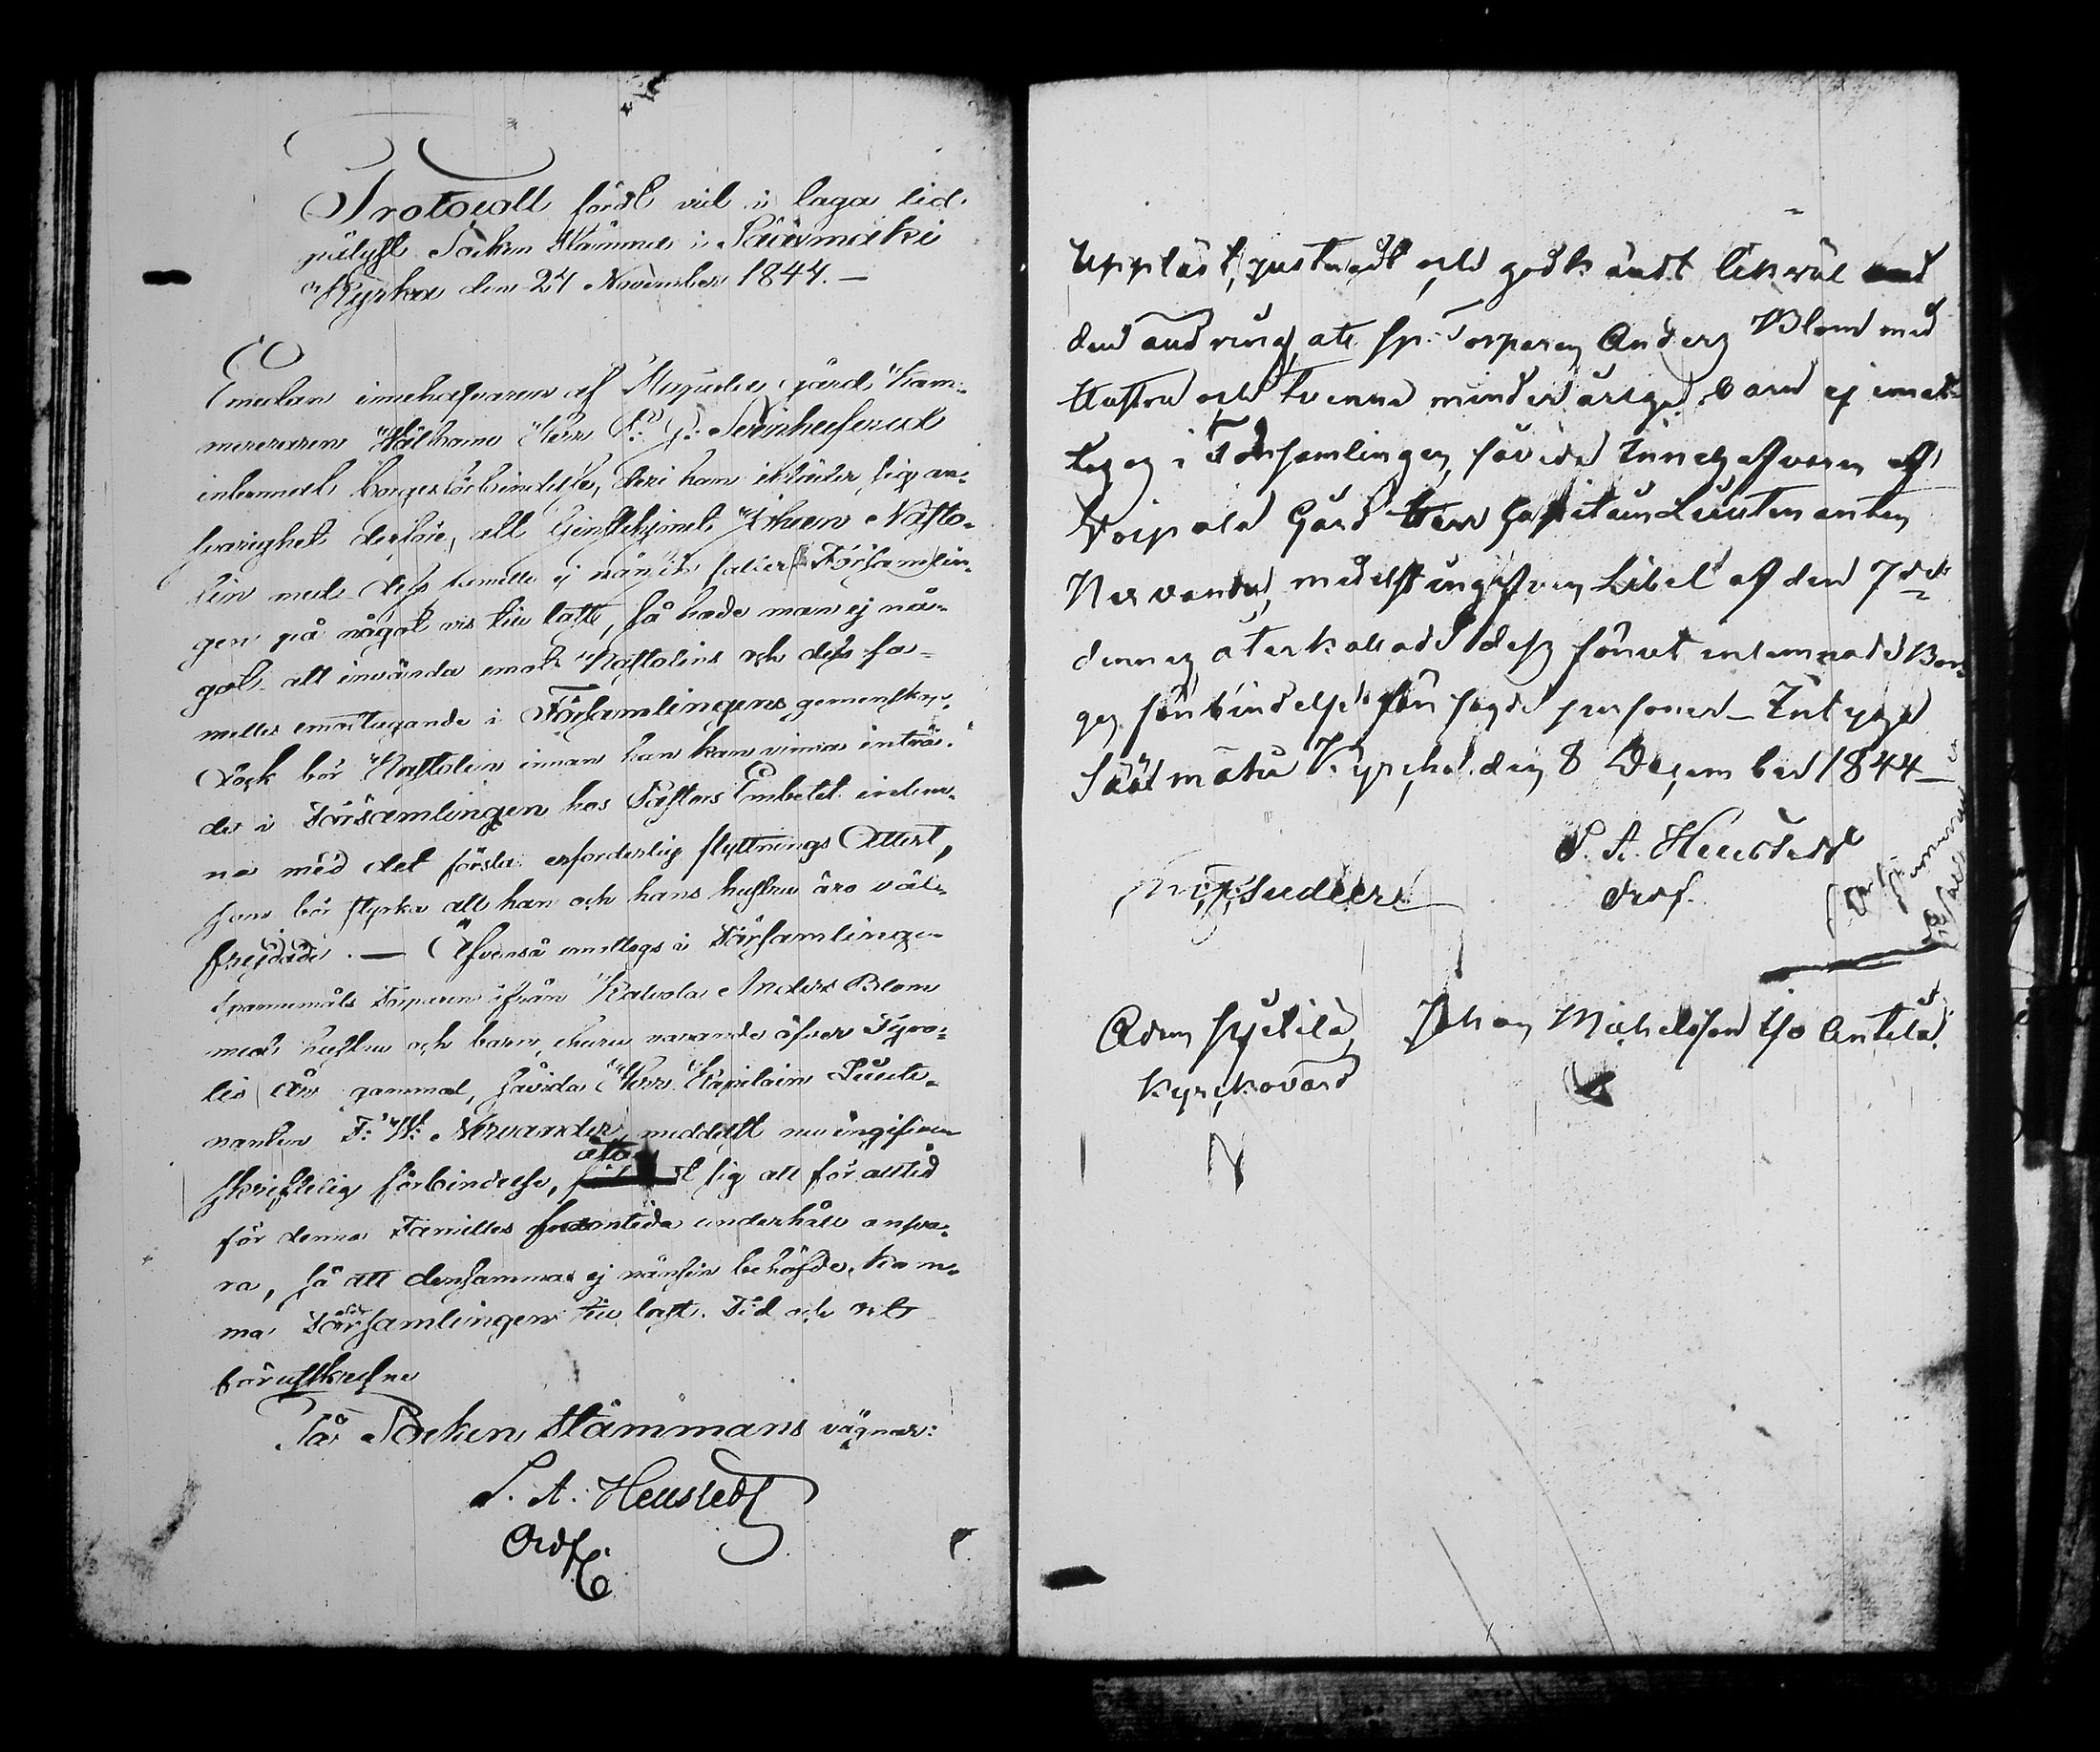 Protocoll fördt vid i laga tid
pålyst Socken Stämma i Sääxmäki
Kyrka den 24 November 1844. —
Emedan innehafvaren af gård Kam-
mereraren Wälborne Herr
inlemnat borgesförbindelse, deri han ikläder sig an-
svarighet derföre, att Johan Nafto-
lin med dess famille ej nånsin faller Församlin-
gen på något vis till last, så hade man ej nå-
got att invända emot Naftolins och dess fa-
milles emottagande i Församlingens gemenskap.
Dock bör Naftolin innan han kan vinna inträ-
de i Församlingen hos Pastors Embetet inlem-
na med det första erforderlig flyttnings Attest,
som bör styrka att han och hans hustru äro väl-
frejdade. — Äfvenså emottogs i Församlingen
Spannemåls Torparen ifrån Kalvola Anders Blom
med hustru och barn, ehuru varande öfver Fyra-
tio år gammal, såvida Herr Kapitain Lieute-
nanten F: W: Nervander, meddelst en ingifven
skriftelig förbindelse, åtog sig att för alltid
för denna Familles framtida underhåll ansva-
ra, så att densamma ej nånsin behöfde kom-
ma Församlingen till last. Tid och ort
förutskrefne
På Socken Stämmans vägnar:
S. A. Heustedt
Ordf
Uppläst, justeradt och godkändt likväl med
den ändring, att sp: Torparen Anders Blom med
Hustru och tvenne minderåriga barn ej emot-
togos i Församlingen, såvida Innehafvaren af
Voipala Gård Herr Capitain Lieutenanten
Nervander, medelst ingifven Libel af den 7de
dennes återkallade dess förut inlemnade Bor-
ges förbindelse för sagde personer — Intygar
Sääxmäki Kyrcka den 8 December 1844 —
S. A. Heustedt
Ordf.
Adam Sjetilä Johan Michelsson ifo Antila
Kyrckovärd